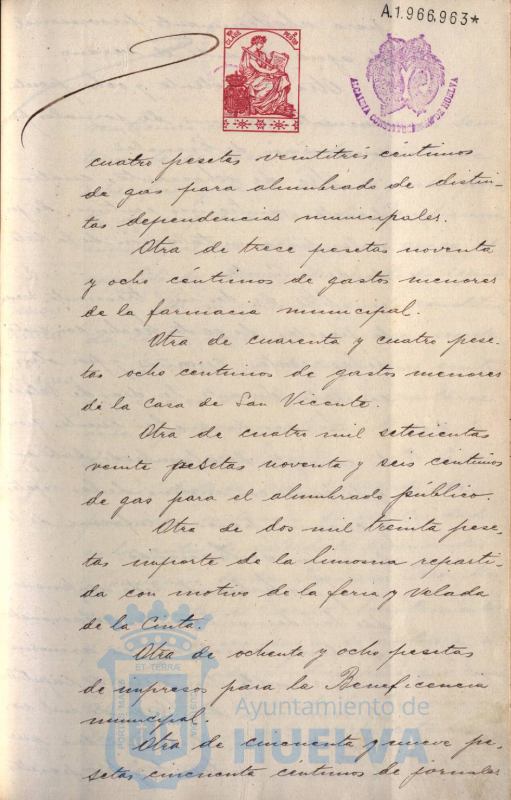 A.1.966,963*
CLASE
ALCALDÍA CONSTITUCIONAL DE HUELVA
cuatro pesetas veintitrés céntimos
de gas para alumbrado de distin-
tas dependencias municipales.
Otra de trece pesetas noventa
y ocho céntimos de gastos menores
de la farmacia municipal.
Otra de cuarenta y cuatro pese-
tas ocho céntimos de gastos menores
de la Casa de San Vicente.
Otra de cuatro mil setecientas
veinte pesetas noventa y seis céntimos
de gas para el alumbrado público.
Otra de dos mil treinta pese-
tas importe de la limosna reparti-
da con motivo de la feria y Velada
de la Cinta.
Otra de ochenta y ocho pesetas
de impresos para la Beneficencia
municipal.
Otra de cincuenta y nueve pe-
setas cincuenta céntimos de jornales
ET TERRÆ
PORTUS MARIS
Ayuntamiento de
HUELVA